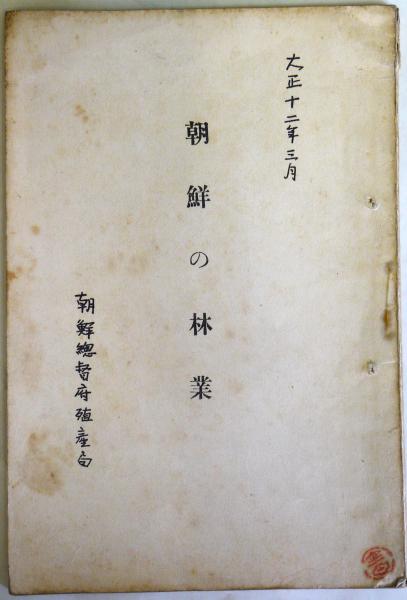 大正十二年三月
朝鮮の林業
朝鮮總督府殖産局